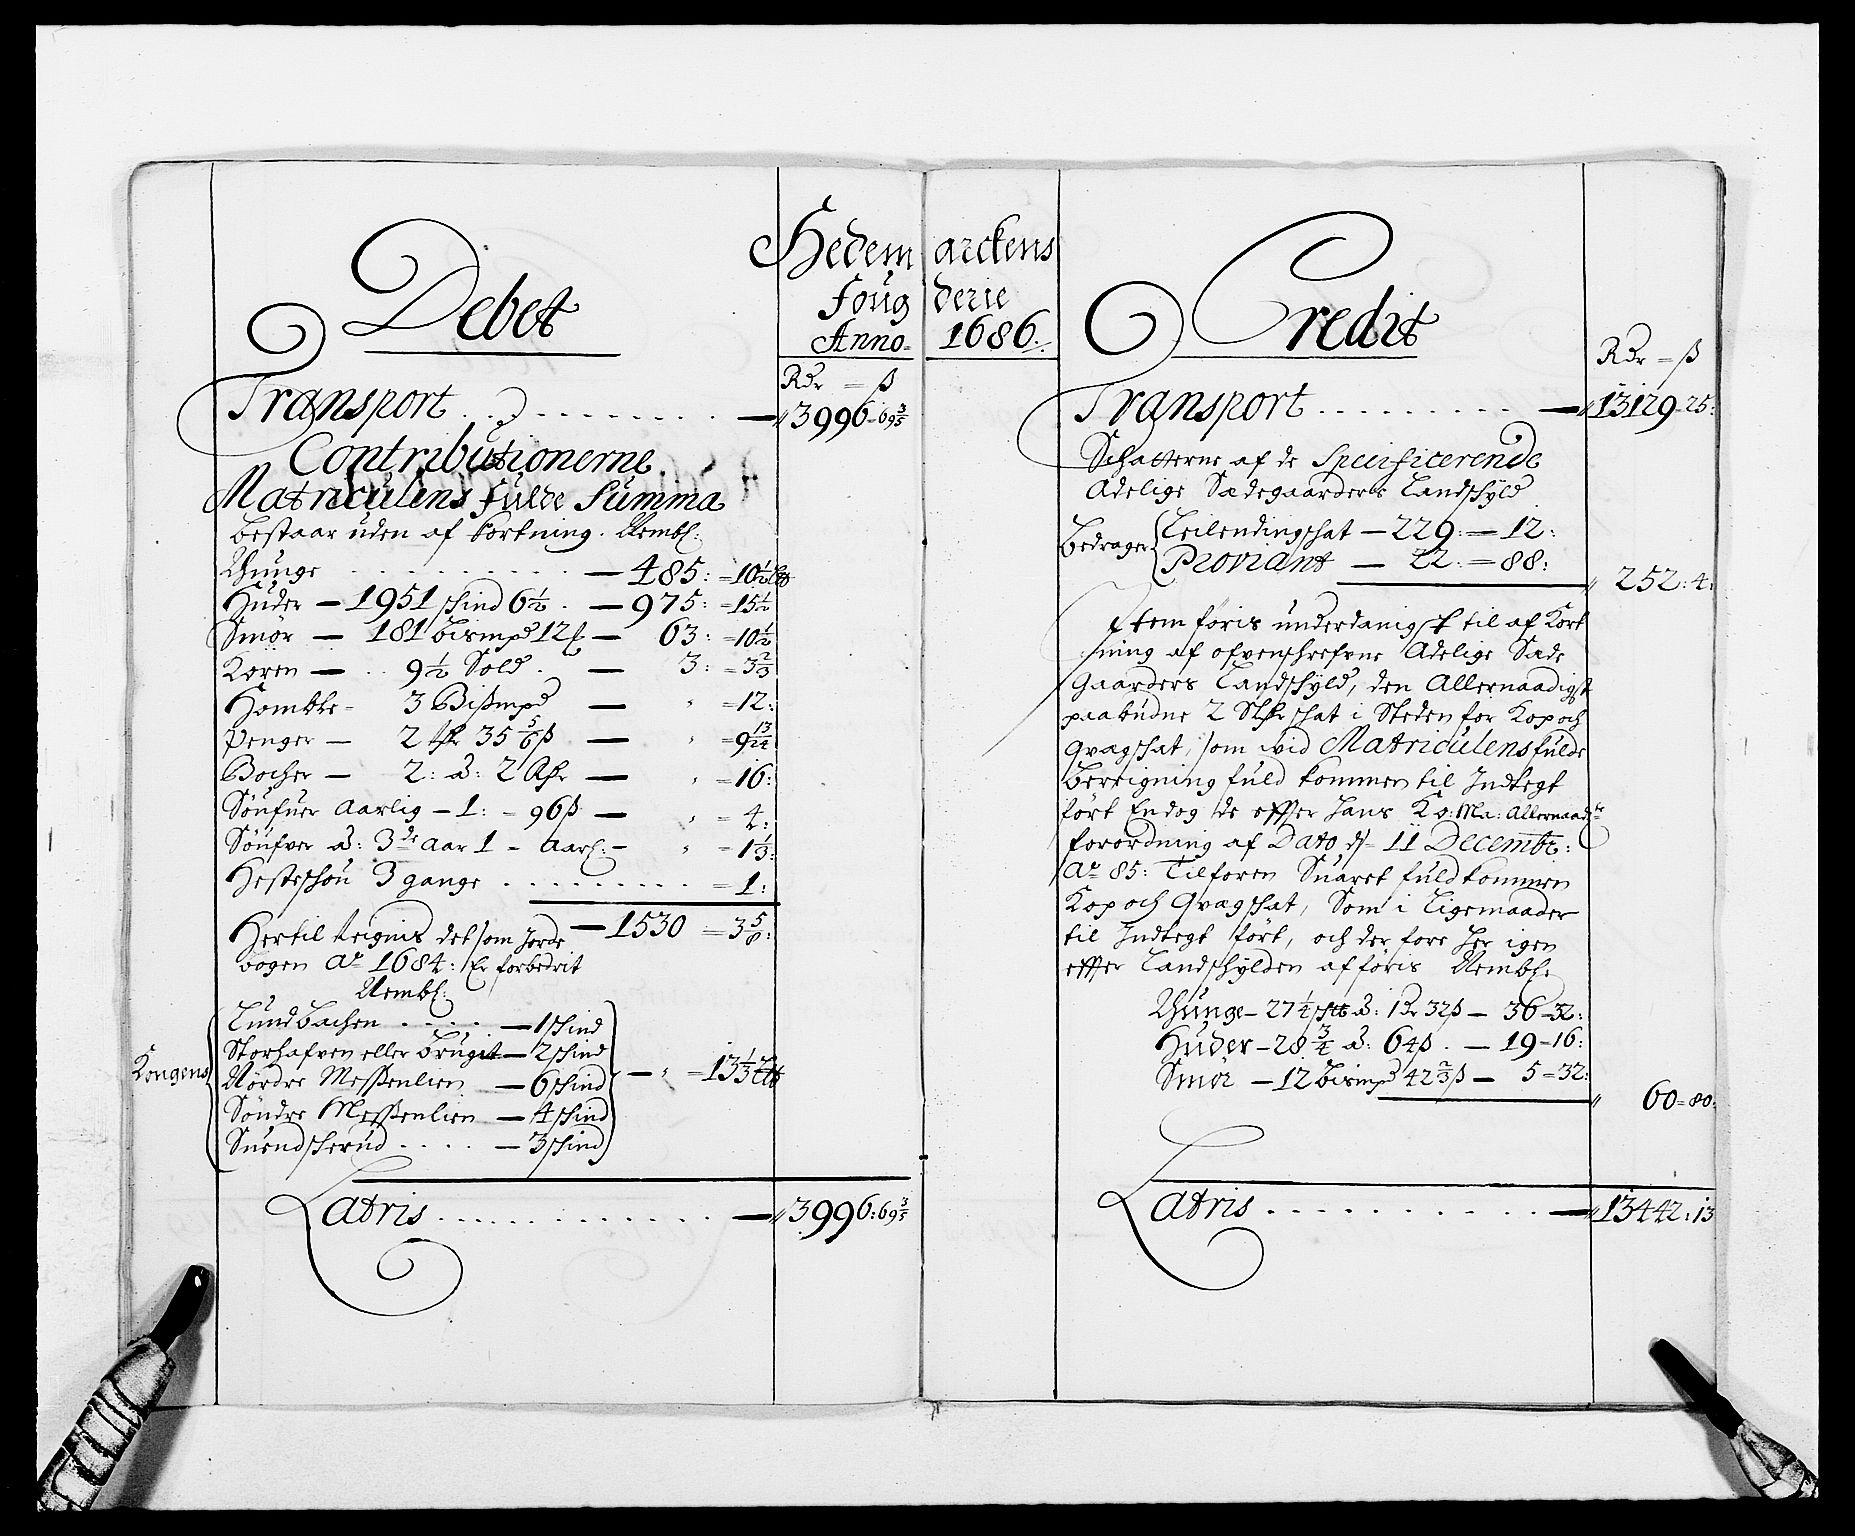 Debet
Hedem
Foug
Anno
Rdr = ß
Transport . . . . . . . . . — 3996=69 3/5
Contributionerne
Matriculens fulde Summa
bestaar uden af kortning. Nembl:
Thunge . . . . . . . . — 485: =10 1/2
Huder — 1951 schind 6 1/2 . — 975: =15 1/2
Smör — 181 bismpd 12 — 63: =10 1/2
Koren — . . 9 1/2 Sold . — 3: =3 2/3
Homble — 3 Bißmpd — " =12:
Penger — 2 35 5/6 ß — " =9 13/24
Bocher — 2: â: 2 — " =16:
Söufuer Aarlig — 1: = 96ß — " = 4:
Söufver â: 3de Aar 1 - Aarl: — " =1 1/3:
Hesteschou 3 gange . . . . . . . . . =1:
— 1530 =3 5/8:
Hertil reignis det som Jorde
bogen Ao 1684: Er forbedrit
Nembl:
Kongens
Lundbachen . . . . — 1 schind
Storhafven eller Brugit — 2 schind
Nördre Messenlien — 6 schind — " =13 1/3
Söndre Messenlien — 4 schind
Suendscherud . . . . — 3 schind
Latris . . . . . . . . . . . . — 3996:69 3/5
arckens
derie
1686.
Credit
Rdr = ß
Transport . . . . . . . . . — 13129=25:
Schatterne af de Specificerende
Adelige Sædegaarders Landschyld
Bedrager
Leilendingschat — 229: = 12:
Proviant — 22: = 88:
252:4:
Item föris underdanigst til af Kort
ning af ofvenschrefvne Adelige Sæde
Gaarders Landschyld, den Allernaadigst
paabudne 2 schat i Steden for Kop och
Qvægschat, som wid Matriculens fulde
Bereigning fuld kommen til Indtegt
fört Endog de effter Hans Ko: Ma: Allernaadte
forordning af Dato d 11 Decembr:
Ao 85: Tilforen Suaret fuldkommen
Kop och Qvægschat, Som i Ligemaader
til Indtegt fört, och derfore her igen
effter Landschylden afföris Nembl:
Thunge — 27 1/4 â: 1 Rdr 32ß — 36=32:
Huder — 28 3/4 â: 64ß . — 19=16:
Smör — 12 bismpd 42 2/3 ß — 5=32:
60=80:
Latris . . . . . . . . . . — 13442:13